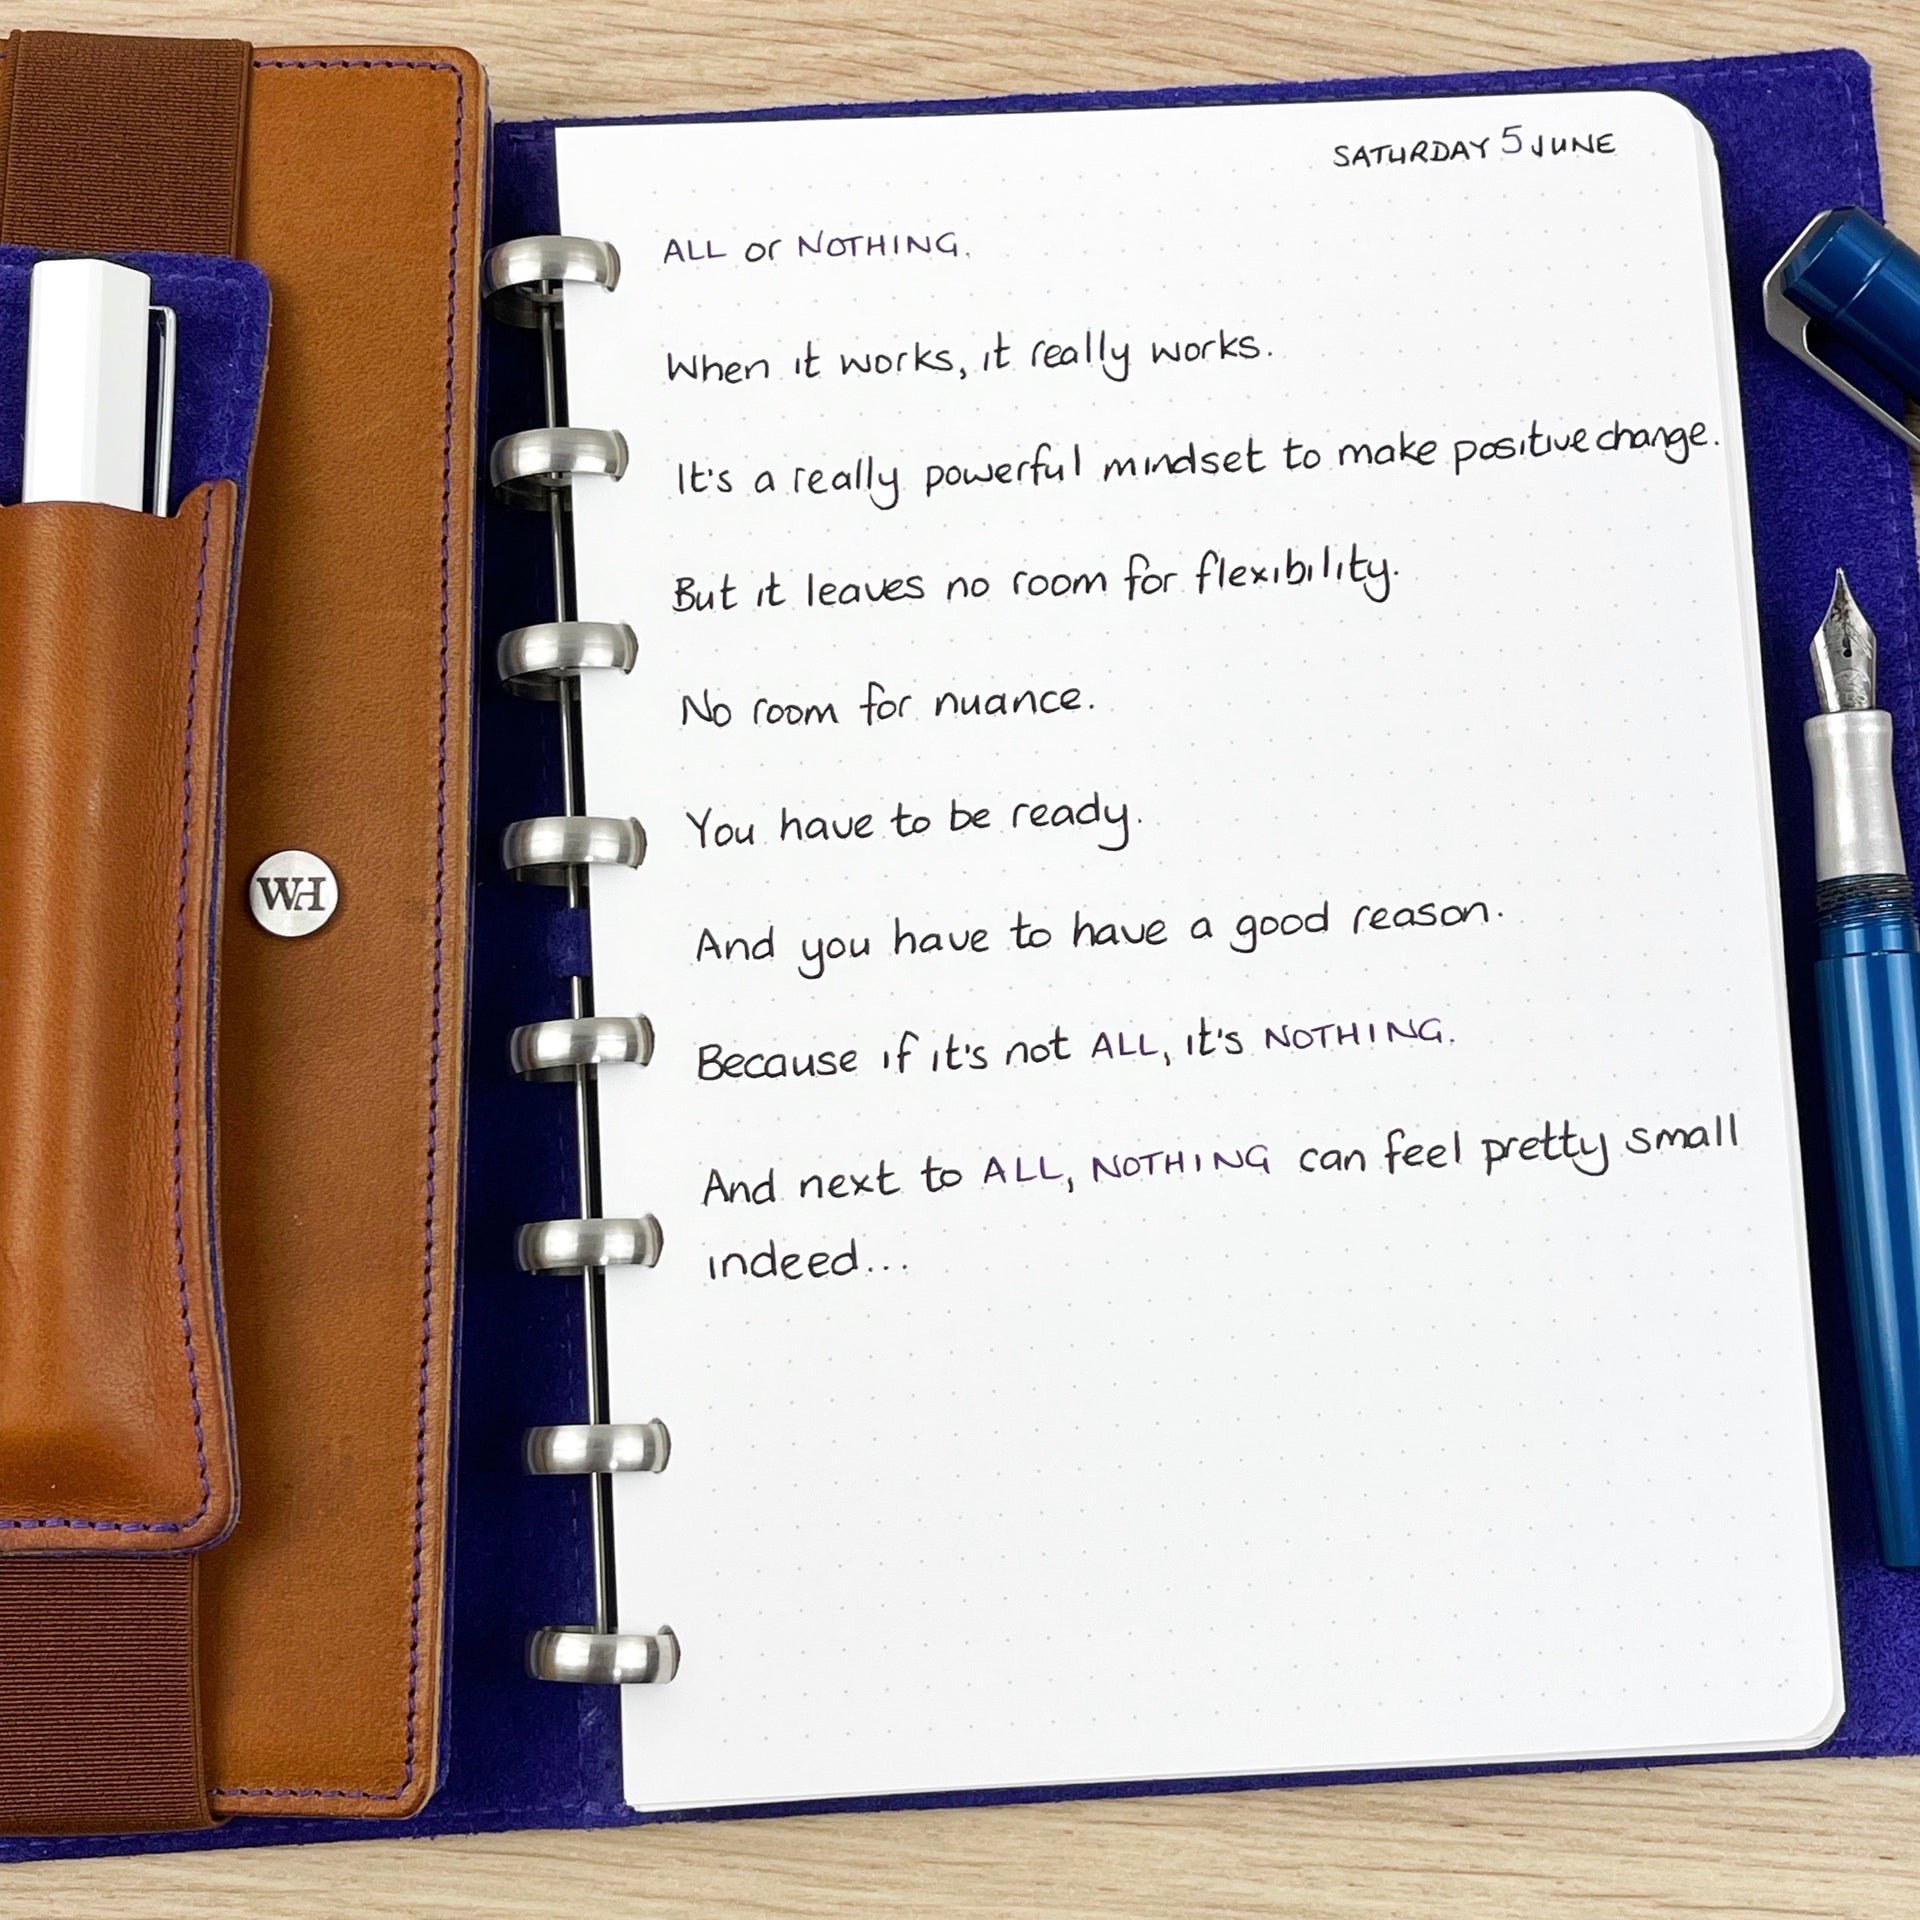 SATURDAY 5 JUNE
ALL or NOTHING.
When it works, it really works.
It's a really powerful mindset to make positive change.
But it leaves no room for flexibility.
No room for nuance.
You have to be ready.
And you have to have a good reason.
Because if it's not ALL, it's NOTHING.
And next to ALL, NOTHING can feel pretty small
indeed...
WH